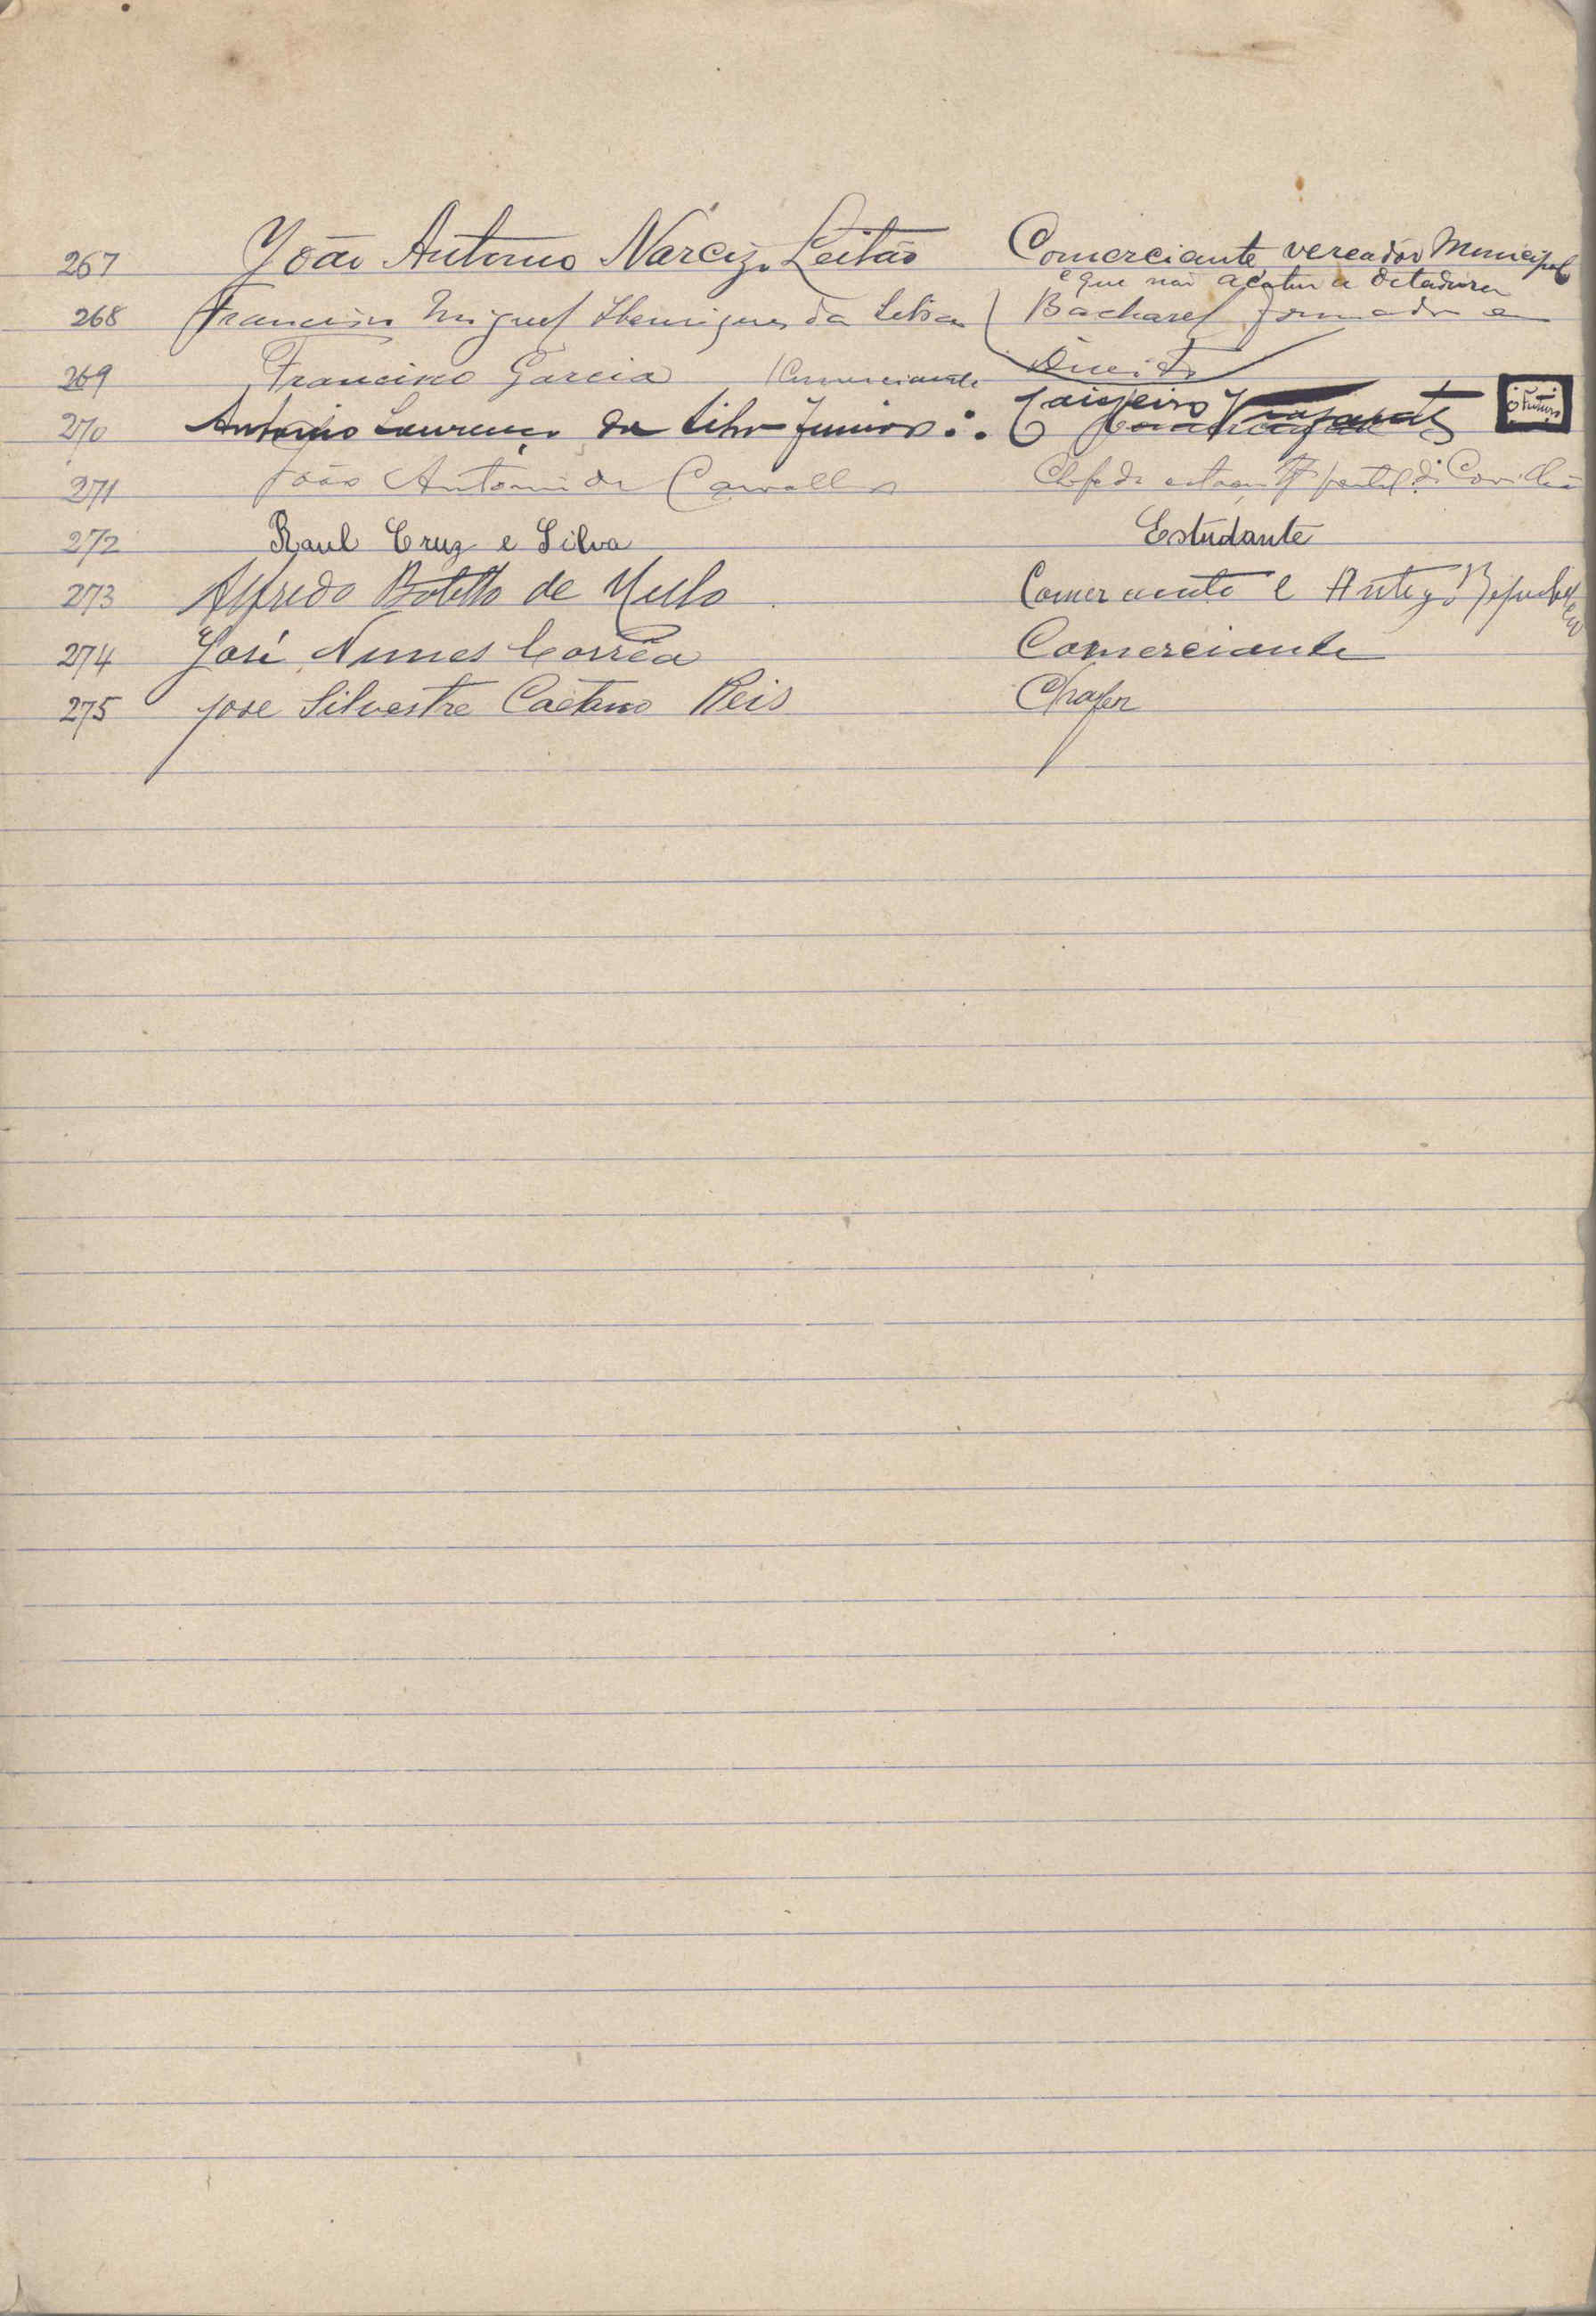 267 João Antonio Narcizo Leitão Comerciante vereador Municipal
e que não acatou a ditadura
268 Francisco Miguel Henriques da Silva Bacharel formado em
Direito
269 Francisco Garcia Comerciante
270 Antonio Lourenço da Silva Junior Caixeiro Viajante
271 João Antonio de Carvalho Chefe da Covilhã
272 Raul Cruz e Silva Estudante
273 Alfredo Botelho de Mello Comerciante e Antigo Republicano
274 José Nunes Corrêa Comerciante
275 José Silvestre Caetano Reis Chafer